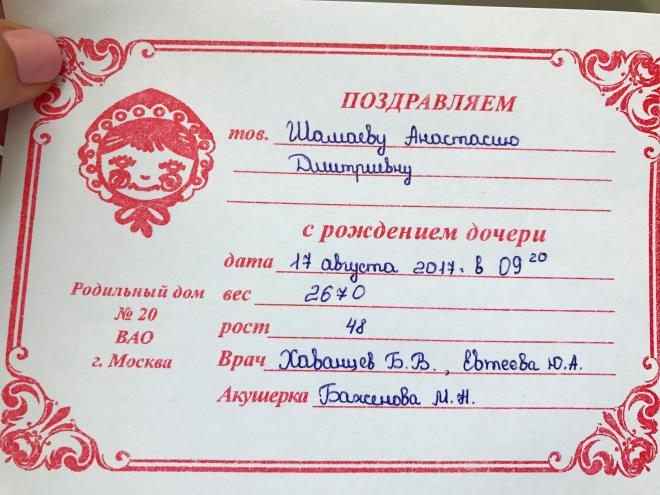 ПОЗДРАВЛЯЕМ
тов. Шамаеву Анастасию
Дмитриевну
с рождением дочери
дата 17 августа 2017г. в 09 20
вес 2670
рост 48
Врач Хаванцев Б.В., Евтеева Ю.А.
Акушерка Баженова М.Н.
Родильный дом
№ 20
ВАО
г. Москва